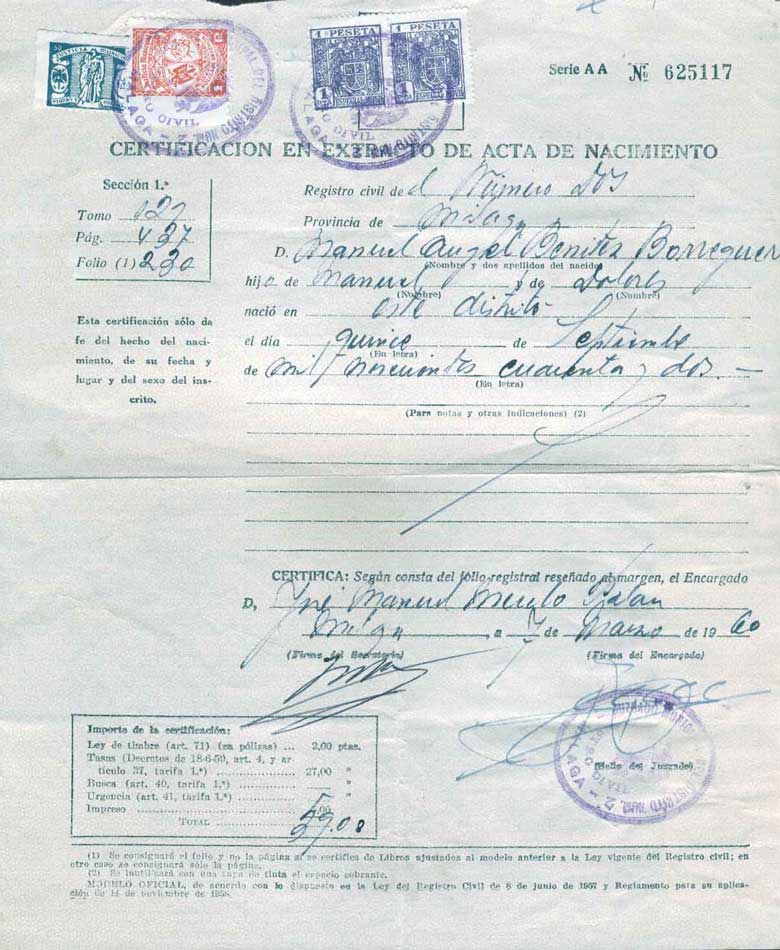 JUSTICIA MUNICIPAL
1 PESETA 1 PESETA
Serie AA № 625117
CERTIFICACION EN EXTRACTO DE ACTA DE NACIMIENTO
Sección 1.ª
Tomo 121
Pág. 437
Folio (1) 230
Esta certificación sólo da
fe del hecho del naci-
miento, de su fecha y
lugar y del sexo del ins-
crito.
Registro civil de el Número Dos
Provincia de Málaga
D. Manuel Angel Benites Borreguer
(Nombre y dos apellidos del nacido)
hijo de Manuel y de Dolores
(Nombre) (Nombre)
nació en este distrito
el día quince de Septiembre
(En letra)
de mil novecientos cuarenta y dos.—
(En letra)
(Para notas y otras indicaciones) (2)
CERTIFICA: Según consta del folio registral reseñado al margen, el Encargado
D, José Manuel
Málaga a 7 de Marzo de 1960
(Firma del Secretario) (Firma del Encargado)
(Sello del Juzgado)
Importe de la certificación:
Ley de timbre (art. 71) (en pólizas) ... 2,00 ptas.
Tasas (Decretos de 18-6-59, art. 4, y ar
tículo 37, tarifa 1.ª) 27,00 "
Busca (art. 40, tarifa 1.ª) "
Urgencia (art. 41, tarifa 1.ª) "
Impreso "
TOTAL
(1) Se consignará el folio y no la página si se certifica de Libros ajustados al modelo anterior a la Ley vigente del Registro civil; en
otro caso se consignará sólo la página.
(2) Se inutilizará con una raya de tinta el espacio sobrante.
MODELO OFICIAL, de acuerdo con lo dispuesto en la Ley del Registro Civil de 8 de junio de 1957 y Reglamento para su aplica-
ción de 14 de noviembre de 1958.